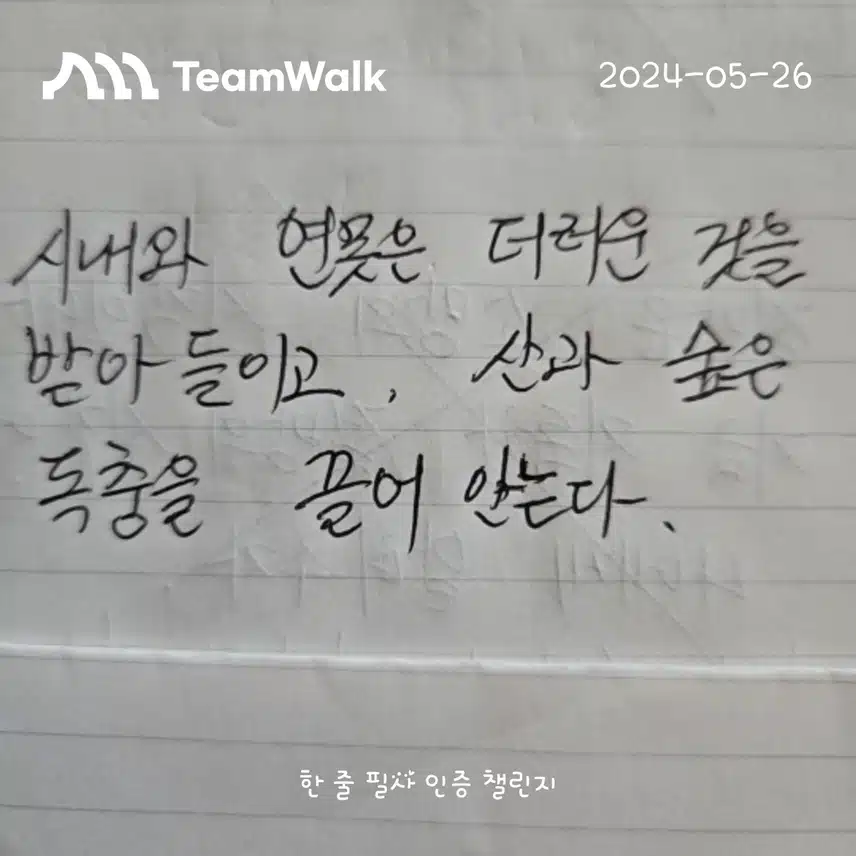 TeamWalk 2024-05-26
시내와 연못은 더러운 것을
받아들이고, 산과 숲은
독충을 끌어 안는다.
한 줄 필사 인증 챌린지